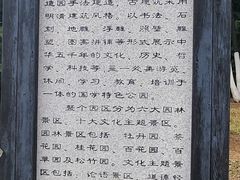 造园手法建造，古建筑采用
明清建筑风格。以书法、石
刻、地雕、浮雕、照壁、雕
塑、图案拼铺等形式展示中
华五千年的文化、历史、哲
学、科技等，是一处集游览、
休闲、学习、教育、培训于
一体的国学特色公园。
整个园区分为六大园林
景区、十大文化主题景区。
园林景区包括：牡丹园、茶
花园、桂花园、百花园、百
草园及松竹园。文化主题景
区包括：论语景区、道德经